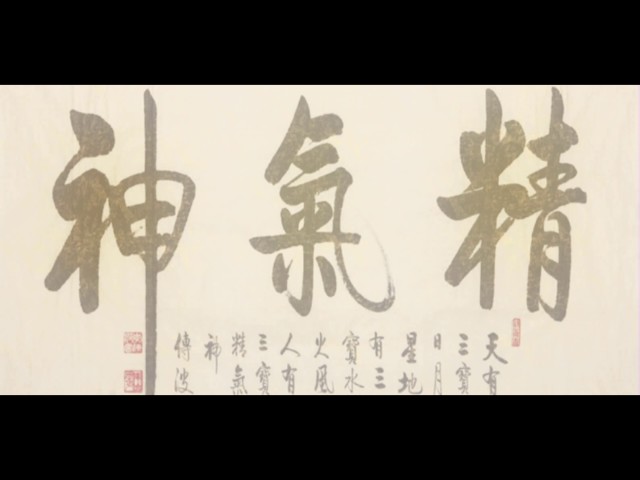 精氣神
天有
三寶
日月
星地
有三
寶水
火風
人有
三寶
精氣
神